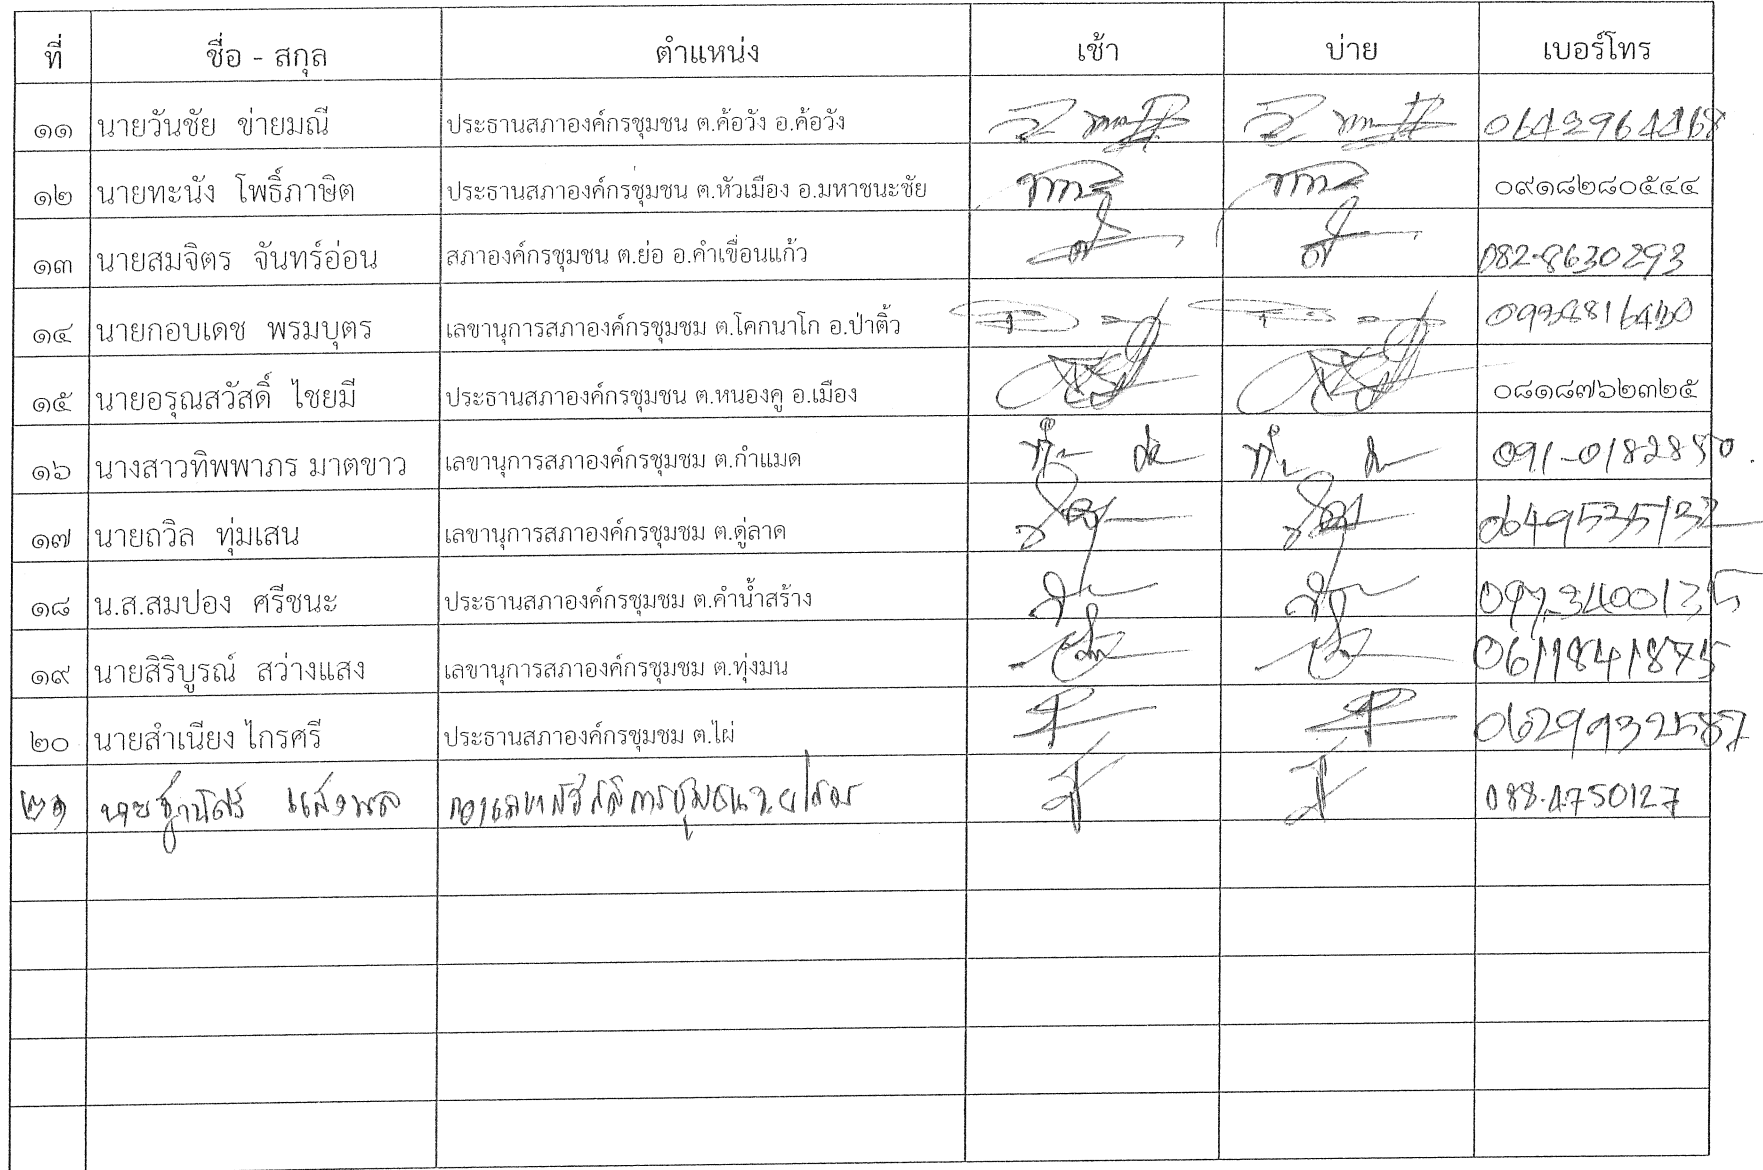 ที่ ชื่อ - สกุล ตำแหน่ง เช้า บ่าย เบอร์โทร
๑๑ นายวันชัย ข่ายมณี ประธานสภาองค์กรชุมชน ต.ค้อวัง อ.ค้อวัง 0642964468
๑๒ นายทะนัง โพธิ์ภาษิต ประธานสภาองค์กรชุมชน ต.หัวเมือง อ.มหาชนะชัย ๐๙๑๘๒๘๐๕๔๔
๑๓ นายสมจิตร จันทร์อ่อน สภาองค์กรชุมชน ต.ย่อ อ.คำเขื่อนแก้ว 082-8630293
๑๔ นายกอบเดช พรมบุตร เลขานุการสภาองค์กรชุมชม ต.โคกนาโก อ.ป่าติ้ว
๑๕ นายอรุณสวัสดิ์ ไชยมี ประธานสภาองค์กรชุมชน ต.หนองคู อ.เมือง ๐๘๑๘๗๖๒๓๒๕
๑๖ นางสาวทิพพาภร มาตขาว เลขานุการสภาองค์กรชุมชม ต.กำแมด 091-0182850
๑๗ นายถวิล ทุ่มเสน เลขานุการสภาองค์กรชุมชม ต.ดู่ลาด 0649535132
๑๘ น.ส.สมปอง ศรีชนะ ประธานสภาองค์กรชุมชม ต.คำน้ำสร้าง 097-3400135
๑๙ นายสิริบูรณ์ สว่างแสง เลขานุการสภาองค์กรชุมชม ต.ทุ่งมน 0611841875
๒๐ นายสำเนียง ไกรศรี ประธานสภาองค์กรชุมชม ต.ไผ่ 0629932587
๒๑ นาย แสงพล 088-4750127